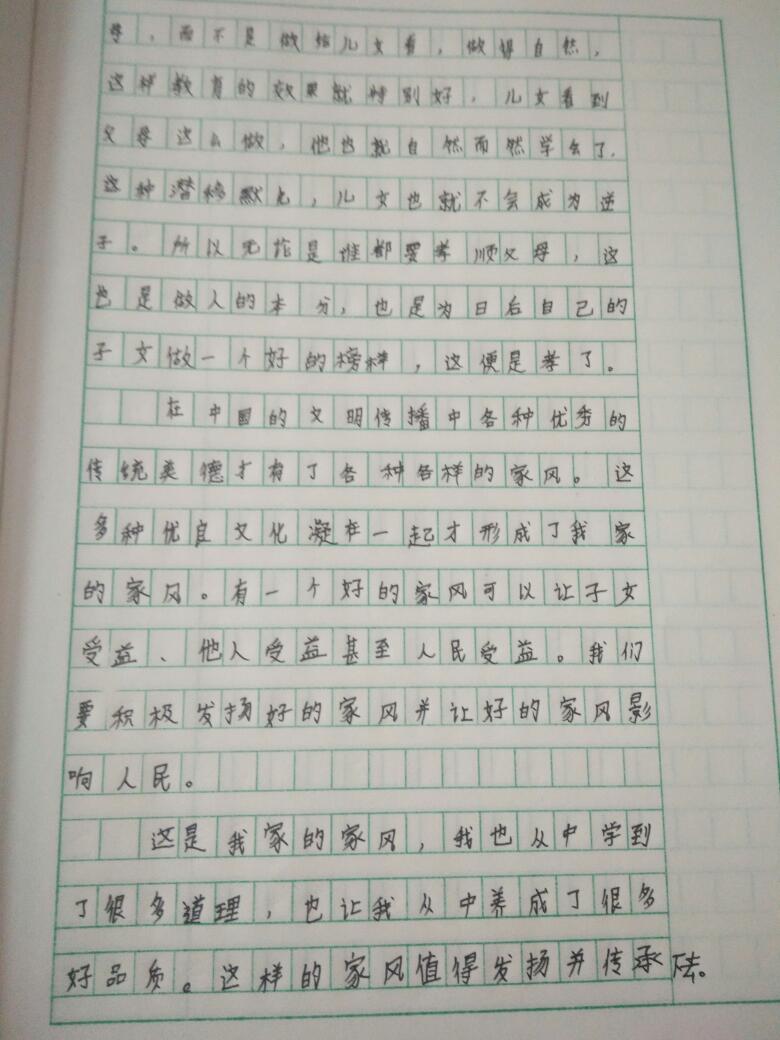 孝，而不是做给儿女看，做得自然，
这样教育的效果就特别好，儿女看到
父母这么做，他也就自然而然学会了，
这种潜移默化，儿女也就不会成为逆
子。所以无论是谁都要孝顺父母，这
也是做人的本分，也是为日后自己的
子女做一个好的榜样，这便是孝了。
在中国的文明传播中各种优秀的
传统美德才有了各种各样的家风。这
多种优良文化凝在一起才形成了我家
的家风。有一个好的家风可以让子女
受益、他人受益甚至人民受益。我们
要积极发扬好的家风并让好的家风影
响人民。
这是我家的家风，我也从中学到
了很多道理，也让我从中养成了很多
好品质。这样的家风值得发扬并传承